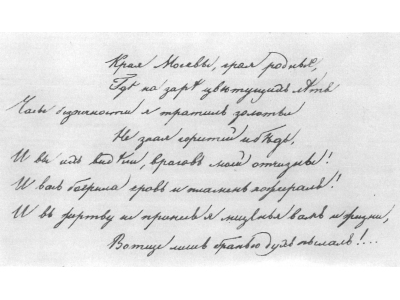 Края Москвы, края родные,
Гдѣ на зарѣ цвѣтущихъ лѣтъ
Часы безпечности я тратилъ золотые
Не зная горестей и бѣдъ,
И вы ихъ видѣли, враговъ моей отчизны!
И васъ багрила кровь и пламень пожиралъ!
И въ жертву не принесъ я мщенья вамъ и жизни,
Вотще лишь гнѣвомъ духъ пылалъ!...